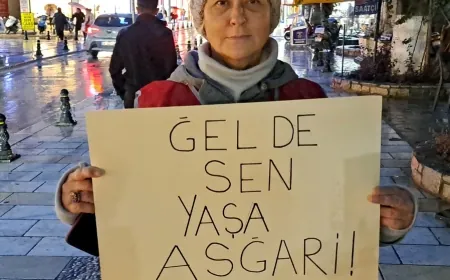 ĞEL DE
SEN
YAŞA
ASĞARİ!